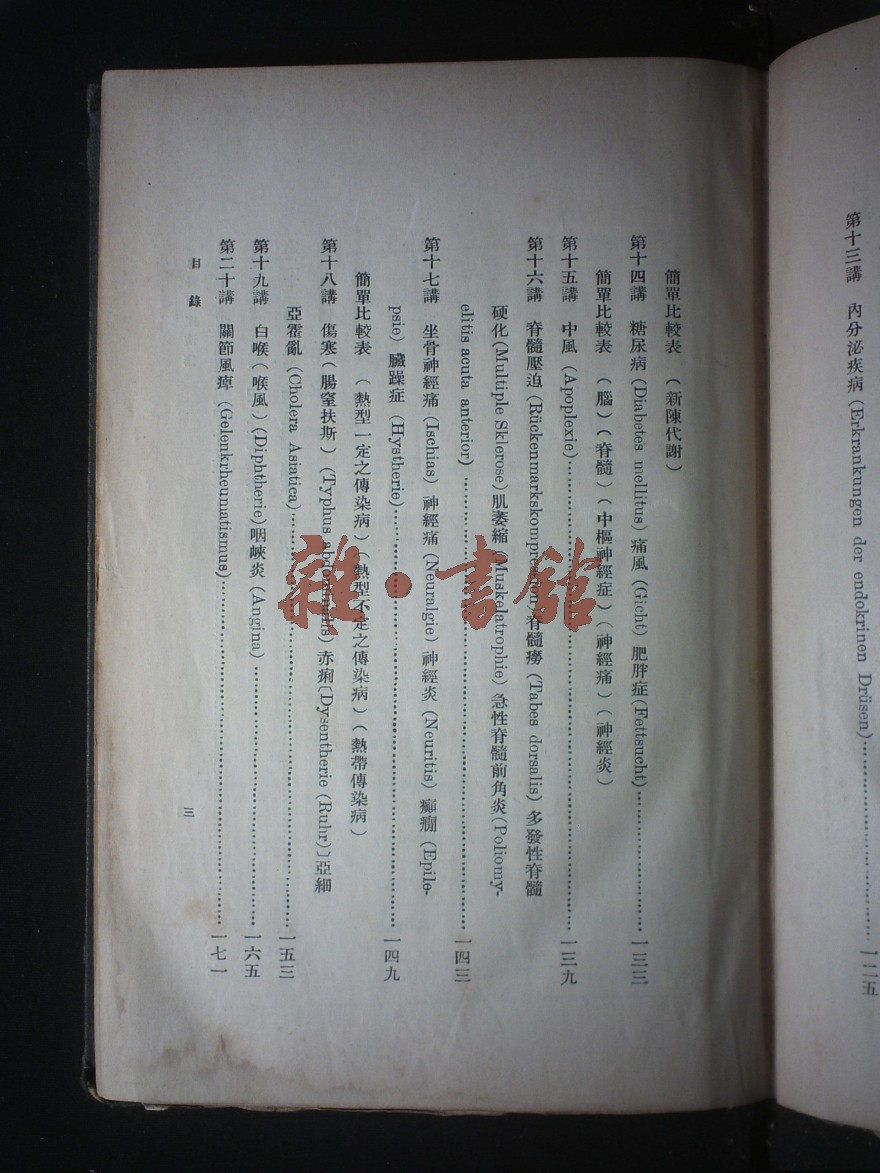 第十三講 內分泌疾病(Erkrankungen der endokrinen Drüsen)……一二五
簡單比較表 (新陳代謝)
第十四講 糖尿病(Diabetes mellitus)痛風(Gicht)肥胖症(Fettsucht)……一三三
簡單比較表 (腦)(脊髓)(中樞神經症)(神經痛)(神經炎)
第十五講 中風(Apoplexie)……一三九
第十六講 脊髓壓迫(Rückenmarkskompression)脊髓癆(Tabes dorsalis)多發性脊髓
硬化(Multiple Sklerose)肌萎縮(Muskelatrophie)急性脊髓前角炎(Poliomy-
elitis acuta anterior)……一四三
第十七講 坐骨神經痛(Ischias)神經痛(Neuralgie)神經炎(Neuritis)癲癇(Epile-
psie)臟躁症(Hystherie)……一四九
簡單比較表 (熱型一定之傳染病)(熱型不定之傳染病)(熱帶傳染病)
第十八講 傷寒(腸窒扶斯)(Typhus abdominalis)赤痢〔Dysentherie(Ruhr)〕亞細
亞霍亂(Cholera Asiatica)……一五三
第十九講 白喉(喉風)(Diphtherie)咽峽炎(Angina)……一六五
第二十講 關節風瘴(Gelenkrheumatismus)……一七一
目錄
三
雜·書館